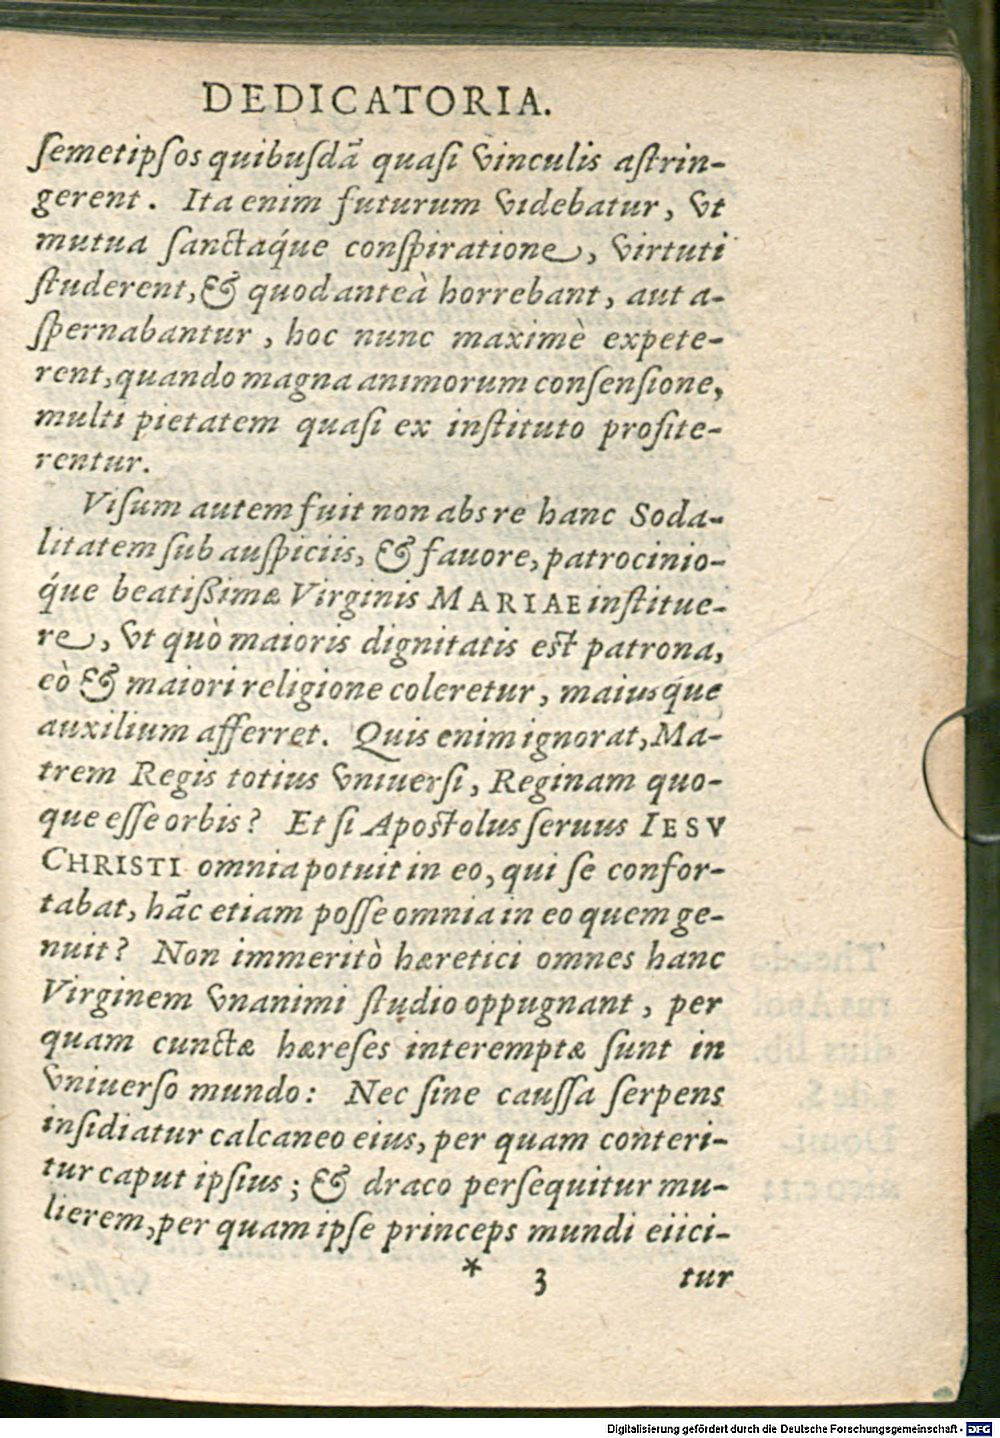 DEDICATORIA.
semetipsos quibusdā quasi vinculis astrin-
gerent. Ita enim futurum videbatur, vt
mutua sanctaq́ue conspiratione, virtuti
studerent, & quod anteà horrebant, aut a-
spernabantur, hoc nunc maximè expete-
rent, quando magna animorum consensione,
multi pietatem quasi ex instituto profite-
rentur.
Visum autem fuit non abs re hanc Soda-
litatem sub auspiciis, & fauore, patrocinio-
q́ue beatißimæ Virginis MARIAE institue-
re, vt quò maioris dignitatis est patrona,
eò & maiori religione coleretur, maiusq́ue
auxilium afferret. Quis enim ignorat, Ma-
trem Regis totius vniuersi, Reginam quo-
que esse orbis? Et si Apostolus seruus IESV
CHRISTI omnia potuit in eo, qui se confor-
tabat, hāc etiam posse omnia in eo quem ge-
nuit? Non immeritò hæretici omnes hanc
Virginem vnanimi studio oppugnant, per
quam cunctæ hæreses interemptæ sunt in
vniuerso mundo: Nec sine caussa serpens
insidiatur calcaneo eius, per quam conteri-
tur caput ipsius; & draco persequitur mu-
lierem, per quam ipse princeps mundi eiici-
* 3 tur
Digitalisierung gefördert durch die Deutsche Forschungsgemeinschaft - DFG